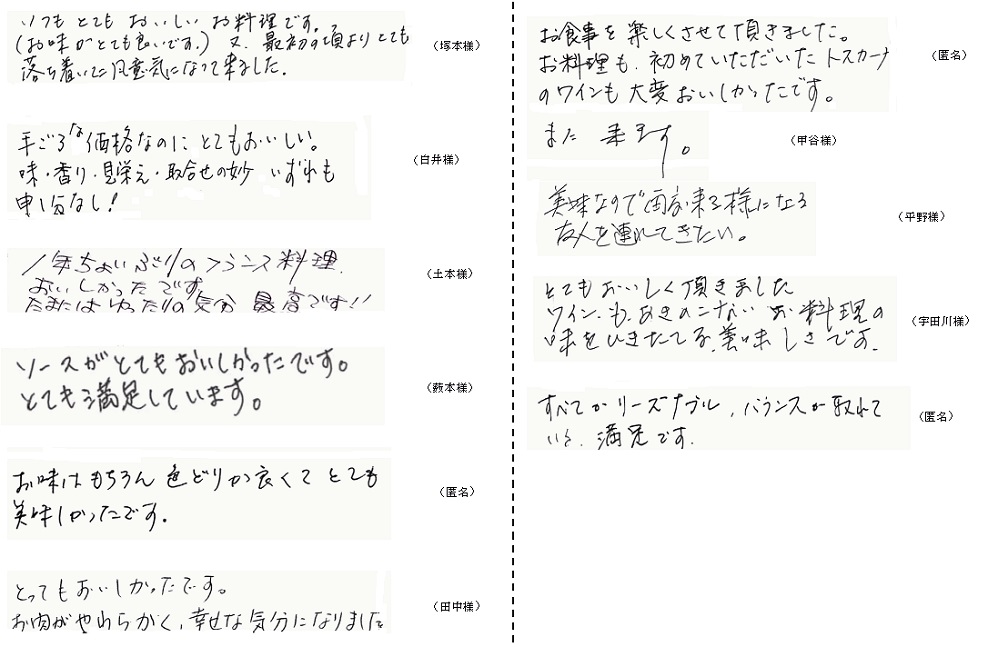 いつもとてもおいしいお料理です。
(お味がとても良いです。) 又、最初の頃よりとても
落ち着いた雰意気になって来ました。
(塚本様)
手ごろな価格なのにとてもおいしい。
味・香り・見栄え・取合せの妙 いずれも
申し分なし!
(白井様)
1年ちょいぶりのフランス料理、
おいしかったです
たまにはゆったりの気分 最高です!!
(土本様)
ソースがとてもおいしかったです。
とても満足しています。
(薮本様)
お味はもちろん 色どりが良くて とても
美味しかったです。
(匿名)
とってもおいしかったです。
お肉がやわらかく、幸せな気分になりました
(田中様)
お食事を楽しくさせて頂きました。
お料理も、初めていただいたトスカーナ
のワインも大変おいしかったです。
(匿名)
また 来ます。
(甲谷様)
美味なので再び来る様になる
友人を連れてきたい。
(平野様)
とてもおいしく頂きました
ワインも、あきのこない お料理の
味をひきたてる、美味しさです。
(宇田川様)
すべてがリーズナブル、バランスが取れて
いる、満足です。
(匿名)